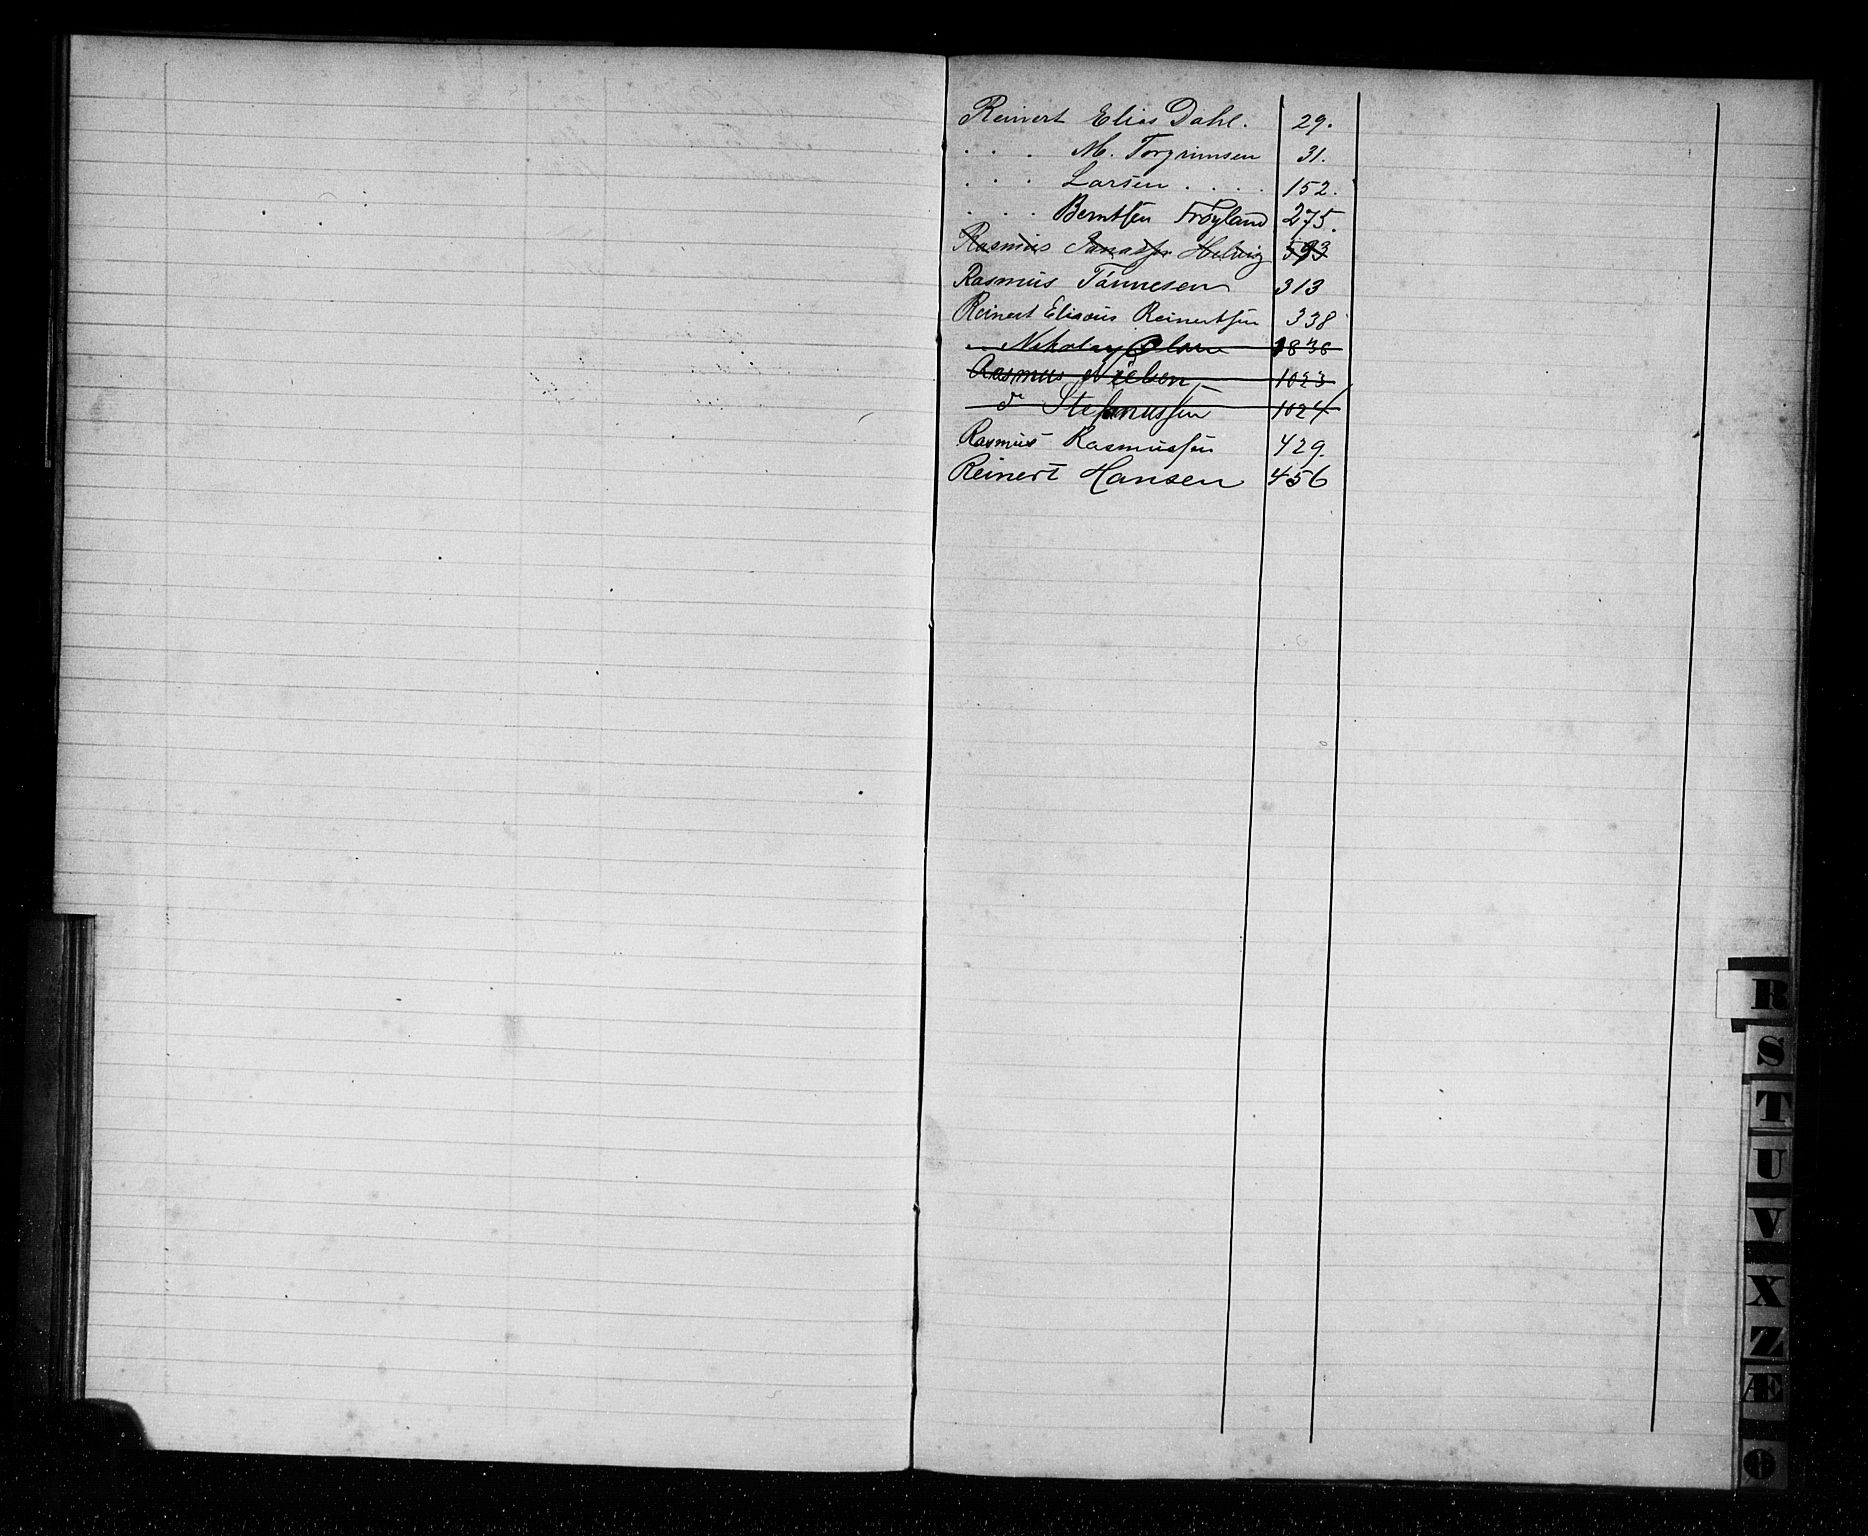 Reinert Elias Dahl. 29.
. . . M. Torgrimsen 31.
. . . Larsen . . . . 152.
. . . Berntsen Frøyland 275.
Rasmus Helvig 593
Rasmus Tønnesen 313
Reinert Elisæus Reinertsen 338
" Nikolay Olsen 1838
Rasmus Nielsen 1023
do Stefanussen 1024
Rasmus Rasmussen 429.
Reinert Hansen 456
R
S
T
U
V
X
Z
Æ
Ø